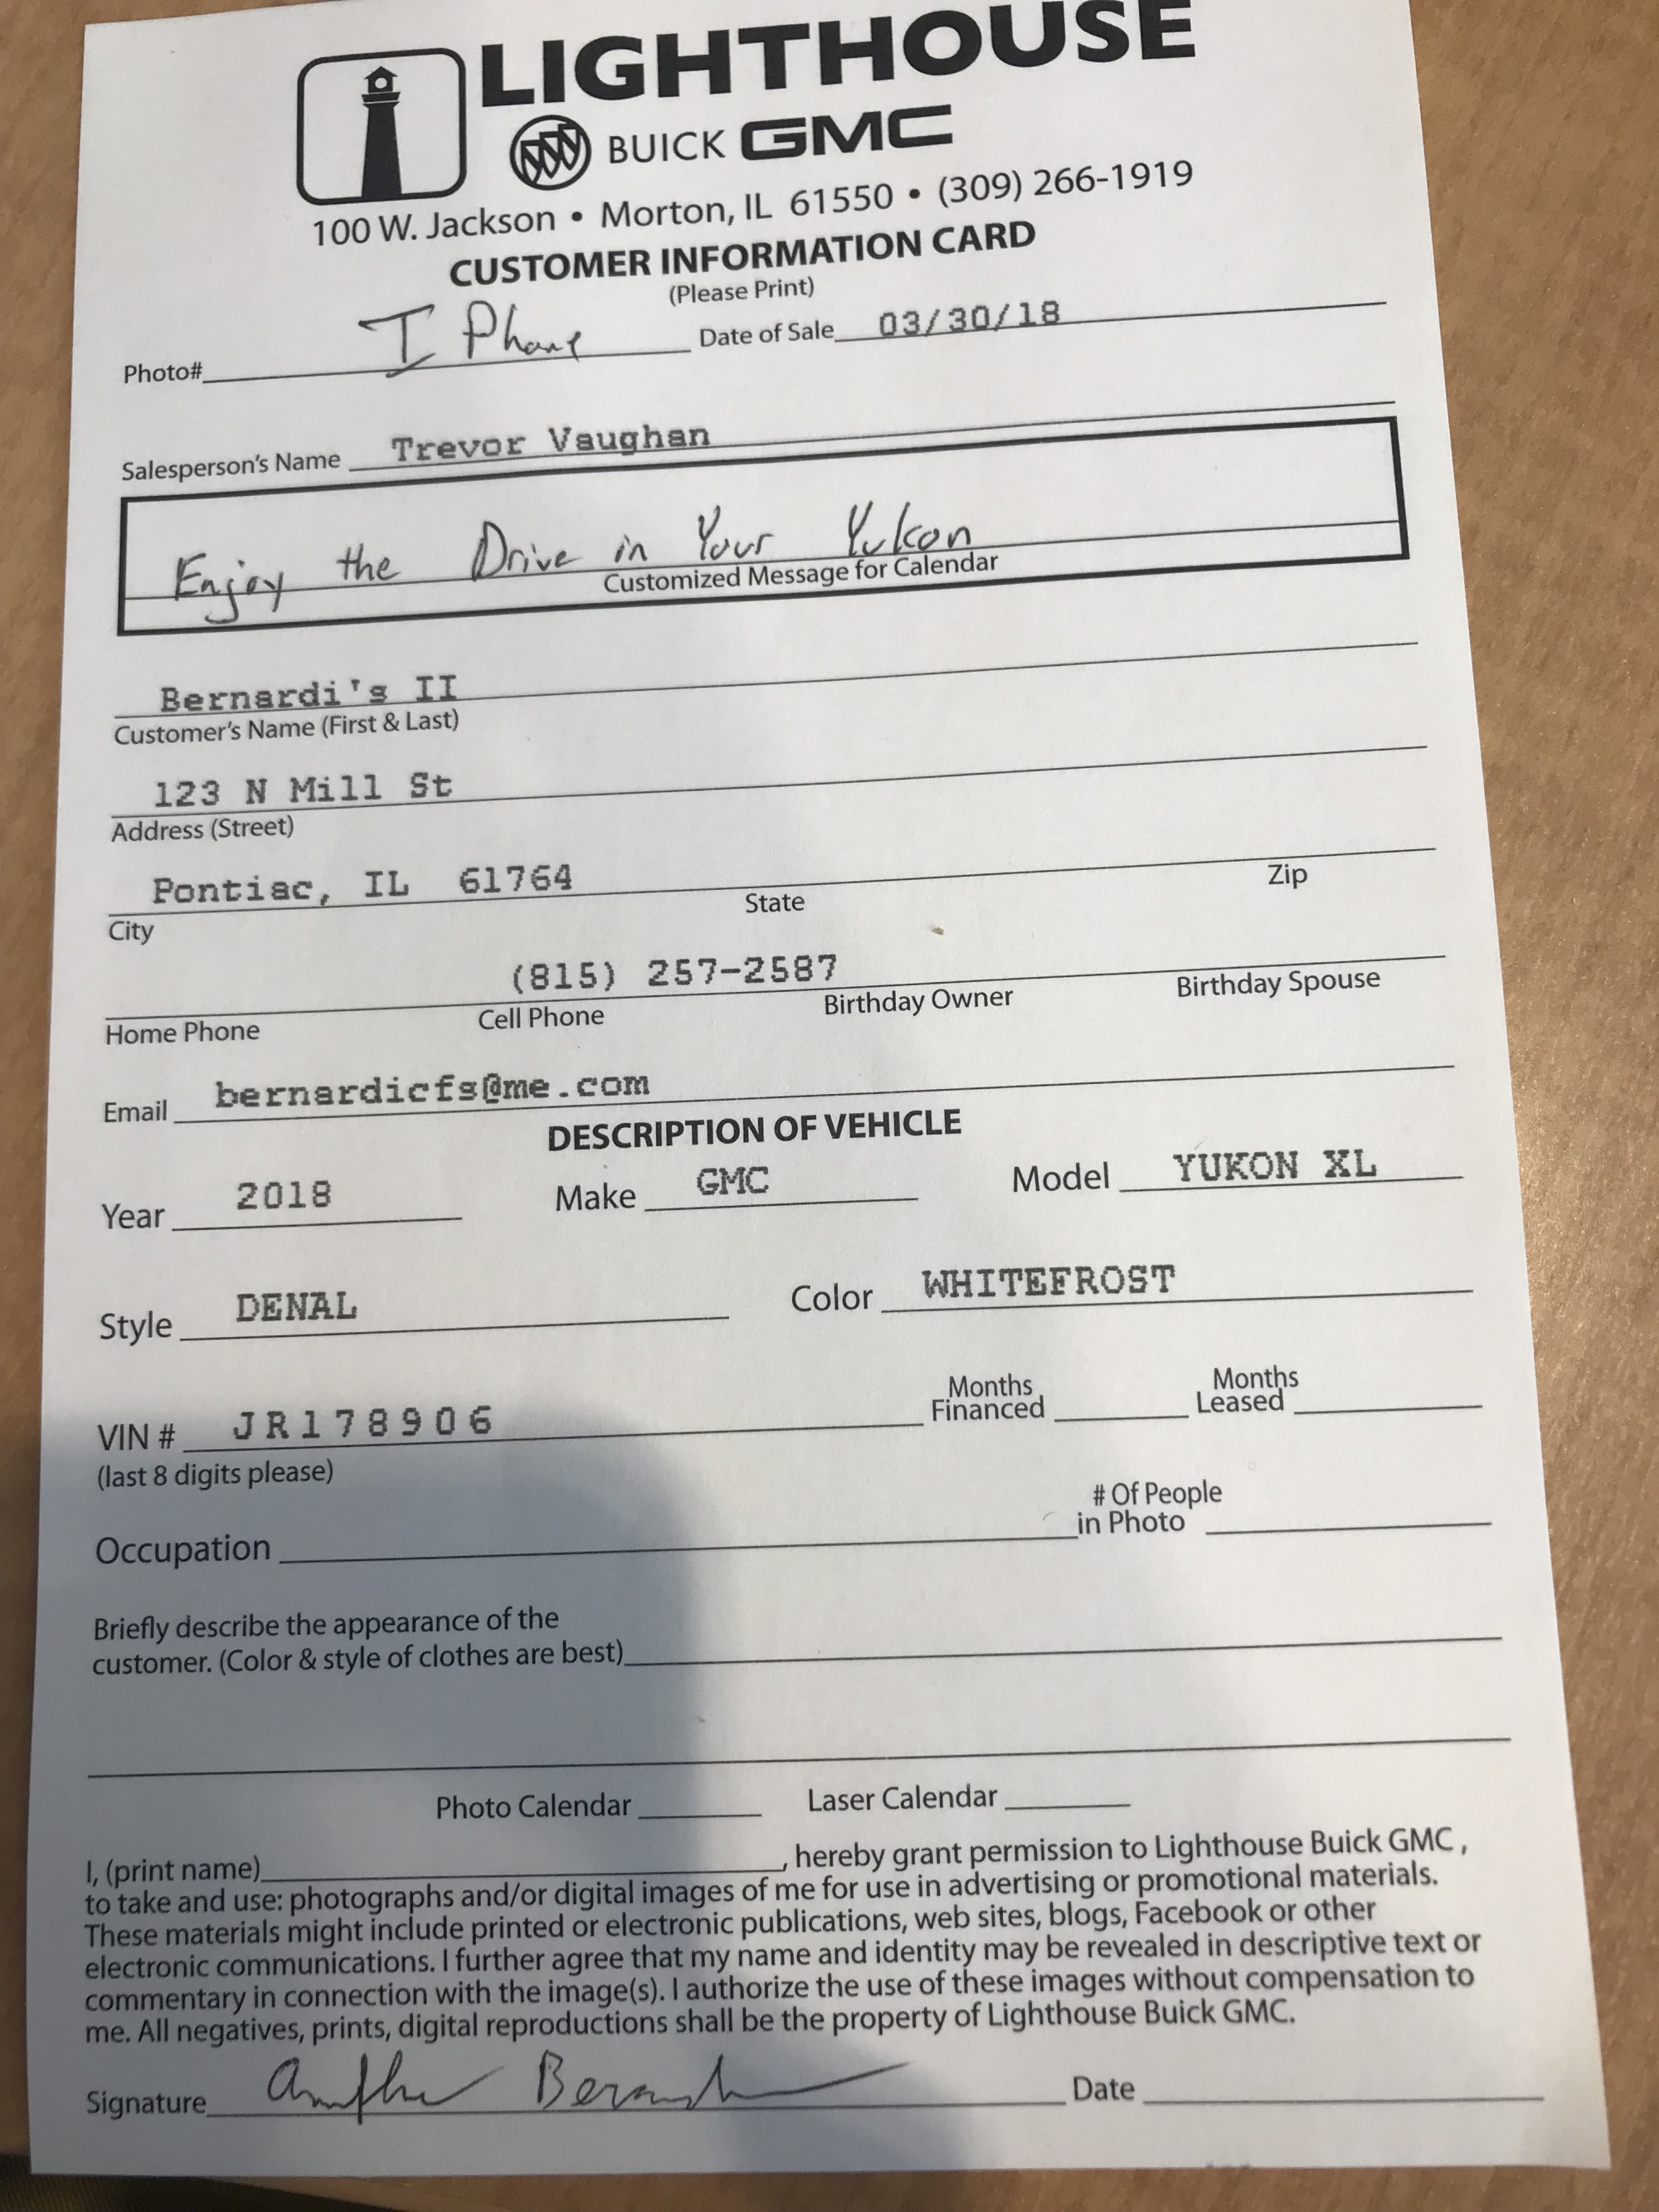 LIGHTHOUSE
BUICK GMC
100 W. Jackson • Morton, IL 61550 • (309) 266-1919
CUSTOMER INFORMATION CARD
(Please Print)
Photo# I Phone Date of Sale 03/30/18
Salesperson's Name Trevor Vaughan
Enjoy the Drive in Your Yukon
Customized Message for Calendar
Bernardi's II
Customer's Name (First & Last)
123 N Mill St
Address (Street)
Pontiac, IL 61764
City State Zip
(815) 257-2587
Home Phone Cell Phone Birthday Owner Birthday Spouse
Email bernardicfs@me.com
DESCRIPTION OF VEHICLE
Year 2018 Make GMC Model YUKON XL
Style DENAL Color WHITEFROST
VIN # JR178906 Months Financed Months Leased
(last 8 digits please)
Occupation # Of People in Photo
Briefly describe the appearance of the
customer. (Color & style of clothes are best)
Photo Calendar Laser Calendar
I, (print name) , hereby grant permission to Lighthouse Buick GMC ,
to take and use: photographs and/or digital images of me for use in advertising or promotional materials.
These materials might include printed or electronic publications, web sites, blogs, Facebook or other
electronic communications. I further agree that my name and identity may be revealed in descriptive text or
commentary in connection with the image(s). I authorize the use of these images without compensation to
me. All negatives, prints, digital reproductions shall be the property of Lighthouse Buick GMC.
Signature Date